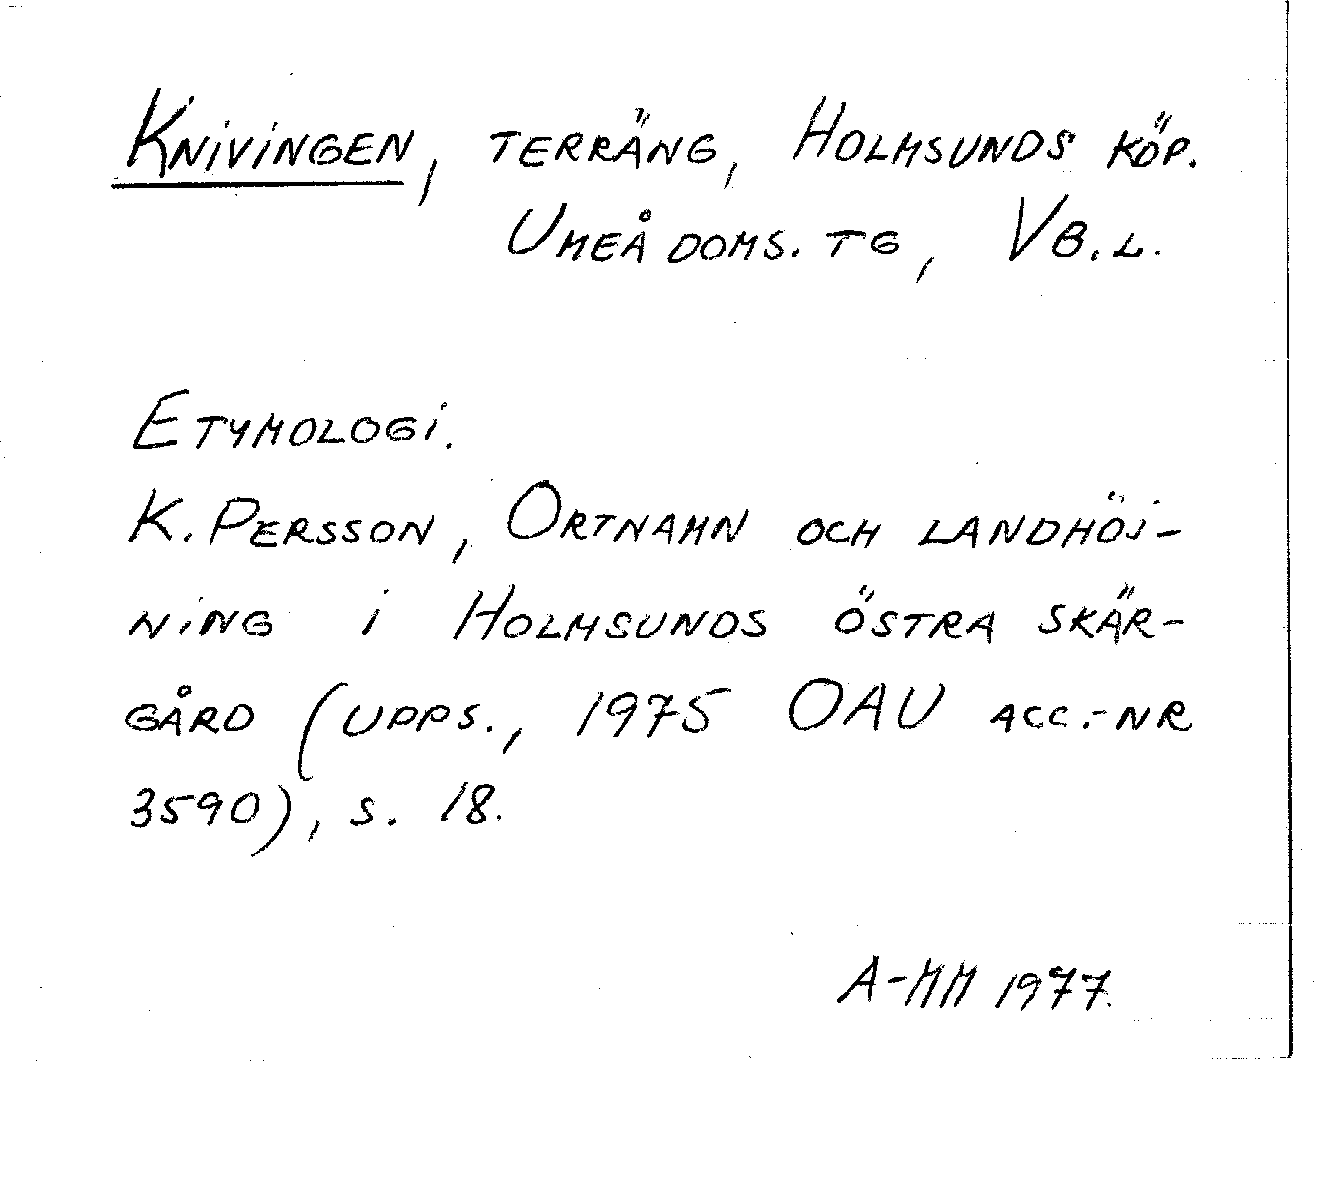 Knivingen, terräng, Holmsunds köp.
Umeå doms. tg, Vb.l.
Etymologi.
K. Persson, Ortnamn och landhöj-
ning i Holmsunds östra skär-
gård (Upps., 1975 OAU acc.-nr
3590), s. 18.
A-MM 1977.